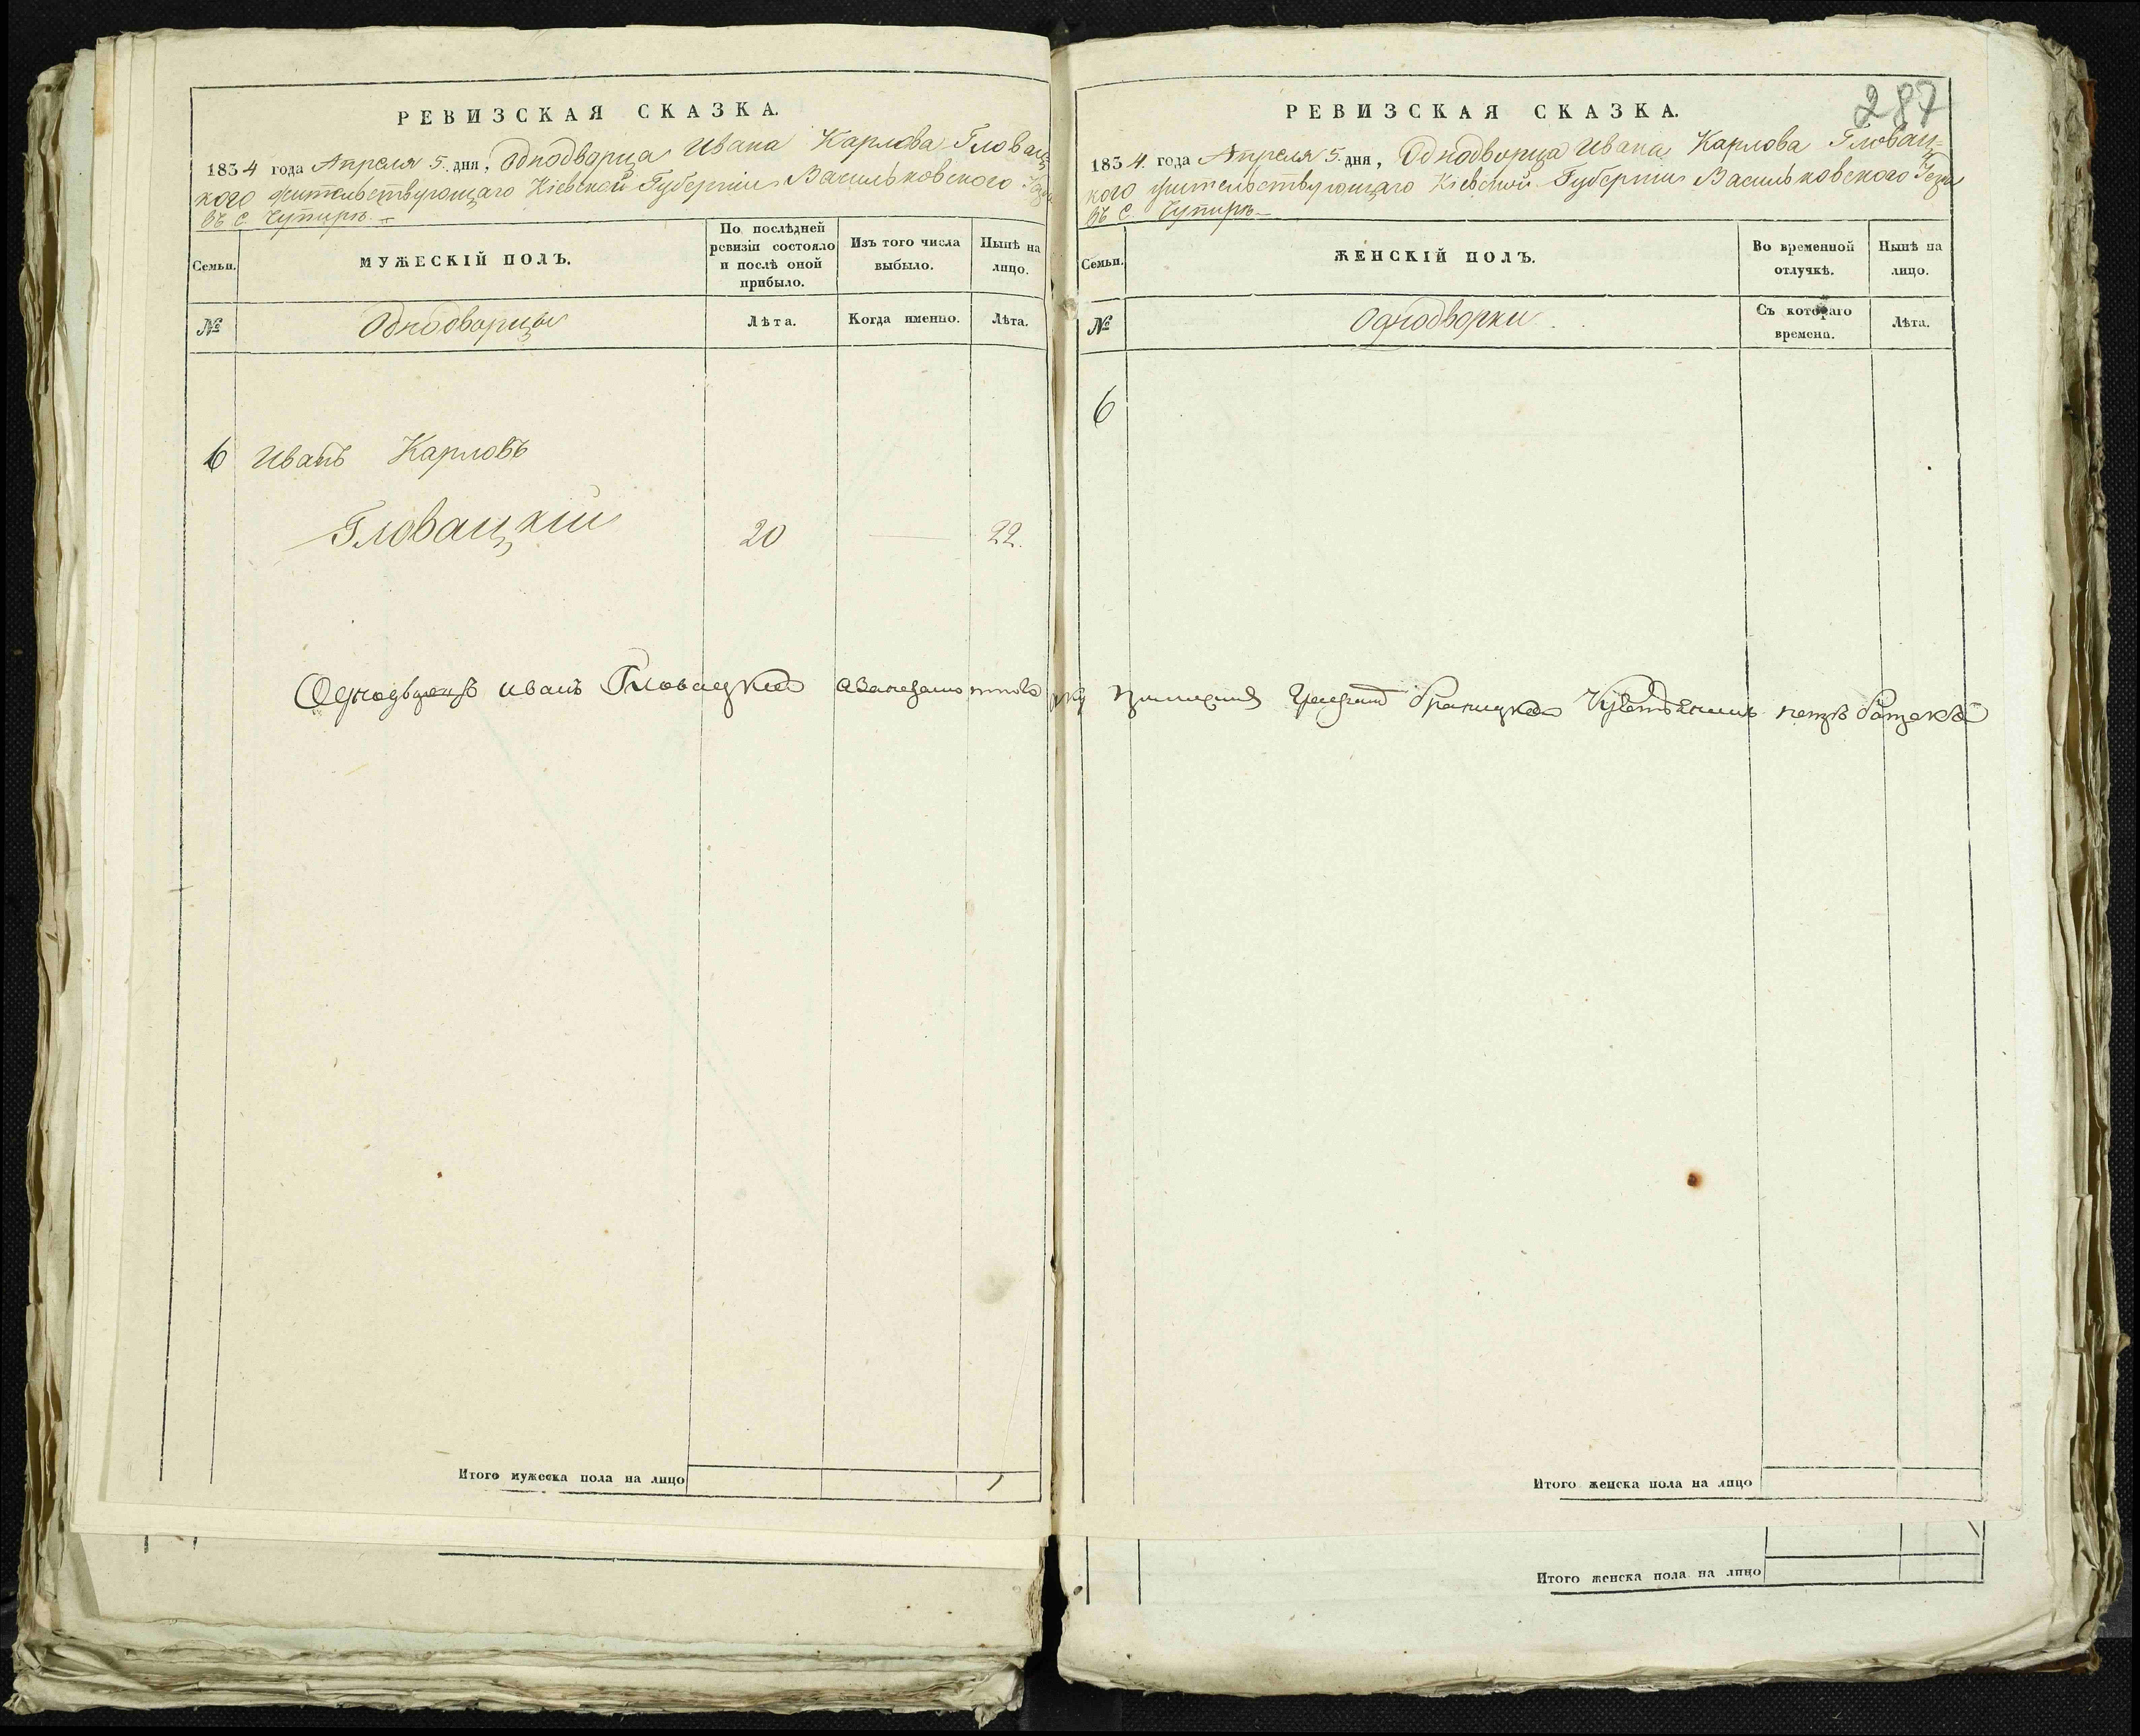 РЕВИЗСКАЯ СКАЗКА.
1834 года Апреля 5. дня, Однодворца Ивана Карлова Гловац-
кого жительствующаго Кіевской Губерніи Васильковского
въ С. Чупирѣ.
Семьи.
МУЖЕСКІЙ ПОЛЪ.
По послѣдней ревизіи состояло и послѣ оной прибыло.
Изъ того числа выбыло.
Нынѣ на лицо.
№
Однодворцы
Лѣта.
Когда именно.
Лѣта.
6 Иванъ Карловъ
Гловацкій 20 — 22.
Однодворецъ Иванъ Гловацкій
Итого мужеска пола на лицо 1
287
РЕВИЗСКАЯ СКАЗКА.
1834. года Апреля 5. дня, Однодворца Ивана Карлова Гловац-
кого жительствующаго Кіевской Губерніи Васильковского
въ С. Чупирѣ
Семьи.
ЖЕНСКІЙ ПОЛЪ.
Во временной отлучкѣ.
Нынѣ на лицо.
№
Однодворки
Съ котораго времени.
Лѣта.
6
Итого женска пола на лицо
Итого женска пола на лицо